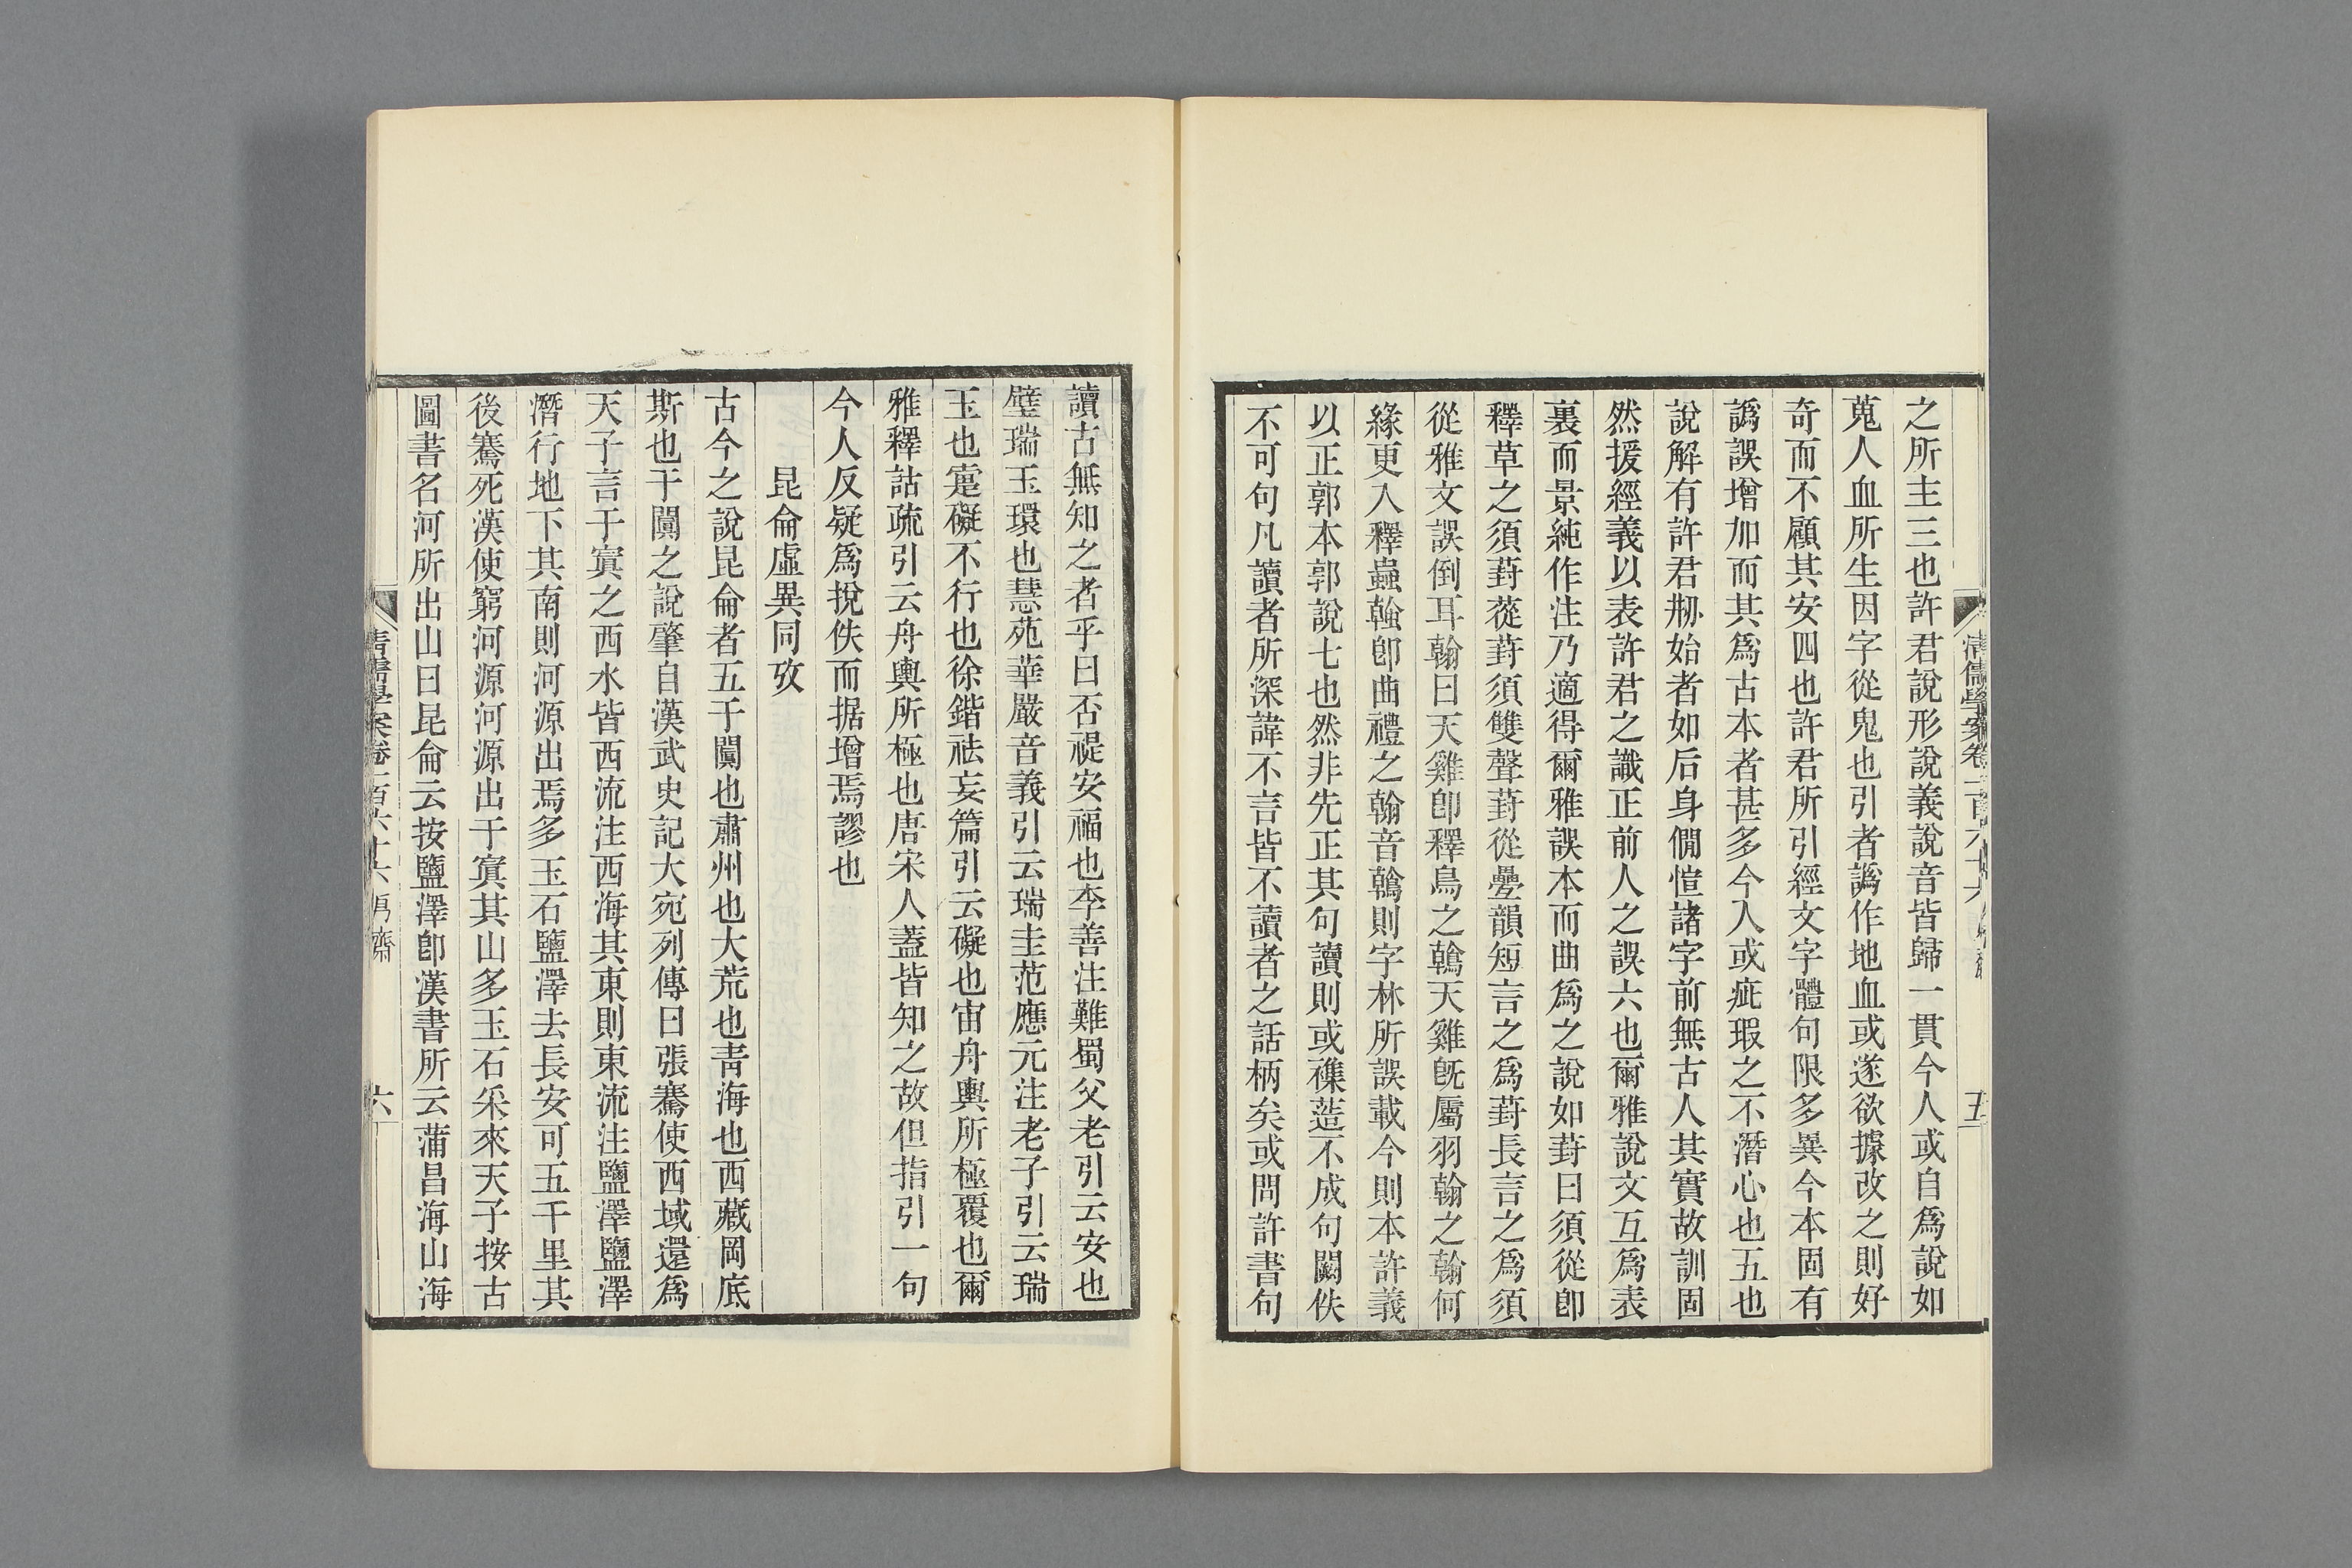 清儒學案卷一百六十六
五
之所主三也許君說形說義說音皆歸一貫今人或自爲說如
蒐人血所生因字從鬼也引者譌作地血或遂欲據改之則好
奇而不顧其安四也許君所引經文字體句限多異今本固有
譌誤增加而其爲古本者甚多今人或疵瑕之不潛心也五也
說解有許君刱始者如后身僩愃諸字前無古人其實故訓固
然援經義以表許君之識正前人之誤六也爾雅說文互爲表
裏而景純作注乃適得爾雅誤本而曲爲之說如葑曰須從卽
釋草之須葑蓯葑須雙聲葑從疊韻短言之爲葑長言之爲須
從雅文誤倒耳翰曰天雞卽釋鳥之鶾天雞旣屬羽翰之翰何
緣更入釋蟲螒卽曲禮之翰音鶾則字林所誤載今則本許義
以正郭本郭說七也然非先正其句讀則或襍䔏不成句闕佚
不可句凡讀者所深諱不言皆不讀者之話柄矣或問許書句
讀古無知之者乎曰否禔安福也李善注難蜀父老引云安也
璧瑞玉環也慧苑華嚴音義引云瑞圭范應元注老子引云瑞
玉也疐礙不行也徐鍇祛妄篇引云礙也宙舟輿所極覆也爾
雅釋詁疏引云舟輿所極也唐宋人蓋皆知之故但指引一句
今人反疑爲挩佚而据增焉謬也
昆侖虛異同攷
古今之說昆侖者五于闐也肅州也大荒也靑海也西藏岡底
斯也于闐之說肇自漢武史記大宛列傳曰張騫使西域還爲
天子言于窴之西水皆西流注西海其東則東流注鹽澤鹽澤
潛行地下其南則河源出焉多玉石鹽澤去長安可五千里其
後騫死漢使窮河源河源出于窴其山多玉石采來天子按古
圖書名河所出山曰昆侖云按鹽澤卽漢書所云蒲昌海山海
清儒學案卷一百六十六
六